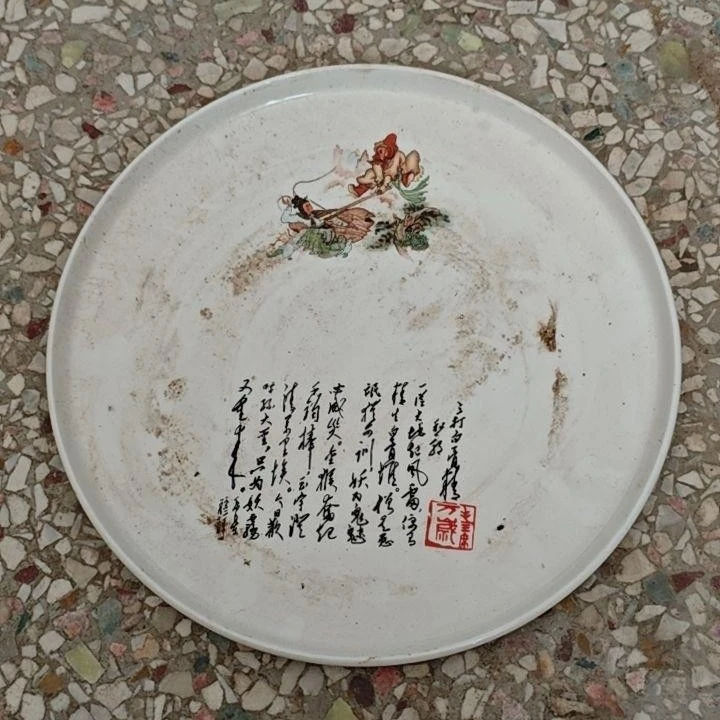 三打白骨精
一从大地起风雷，便有
精生白骨堆。僧是愚
氓犹可训，妖为鬼蜮
必成災。金猴奋起
千钧棒，玉宇澄
清万里埃。今日歡
呼孙大圣，只为妖霧
又重来。
毛主席
万歲